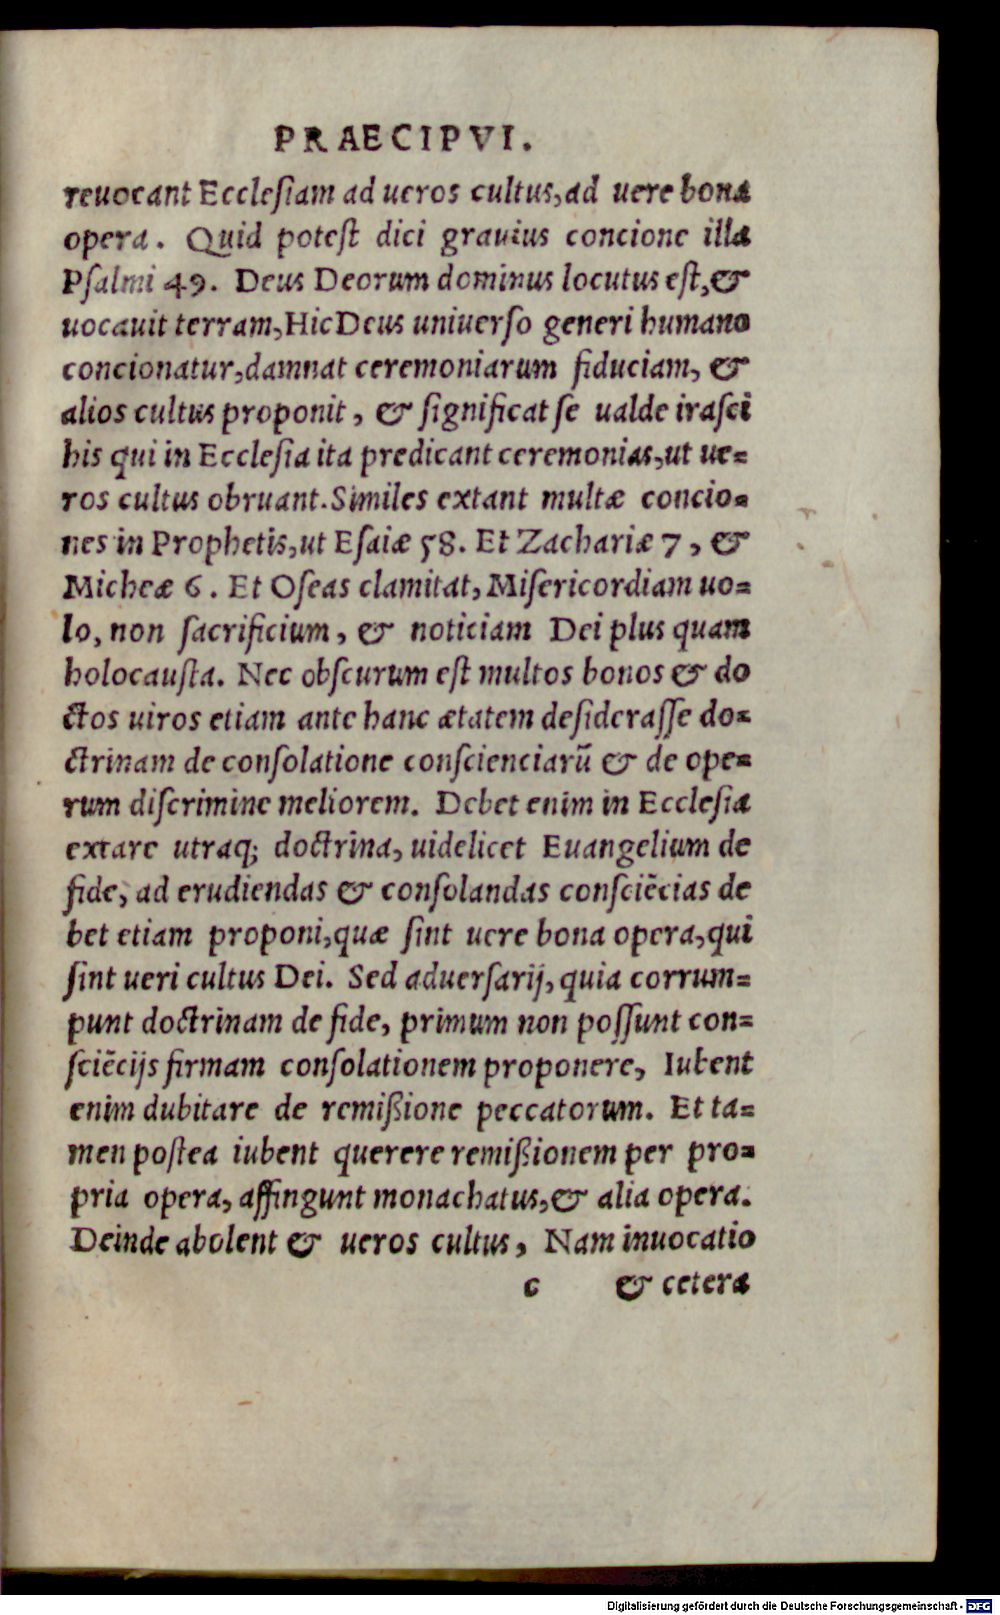 PRAECIPVI.
reuocant Eccleſiam ad ueros cultus, ad uere bona
opera. Quid poteſt dici grauius concione illa
Pſalmi 49. Deus Deorum dominus locutus eſt, &
uocauit terram, Hic Deus uniuerſo generi humano
concionatur, damnat ceremoniarum fiduciam, &
alios cultus proponit, & ſignificat ſe ualde iraſci
his qui in Eccleſia ita predicant ceremonias, ut ue=
ros cultus obruant. Similes extant multæ concio=
nes in Prophetis, ut Eſaiæ 58. Et Zachariæ 7, &
Micheæ 6. Et Oſeas clamitat, Miſericordiam uo=
lo, non ſacrificium, & noticiam Dei plus quam
holocauſta. Nec obſcurum eſt multos bonos & do
ctos uiros etiam ante hanc ætatem deſideraſſe do=
ctrinam de conſolatione conſcienciarũ & de ope=
rum diſcrimine meliorem. Debet enim in Eccleſia
extare utraq; doctrina, uidelicet Euangelium de
fide, ad erudiendas & conſolandas conſciẽcias de
bet etiam proponi, quæ ſint uere bona opera, qui
ſint ueri cultus Dei. Sed aduerſarij, quia corrum=
punt doctrinam de fide, primum non poſſunt con=
ſciẽcijs firmam conſolationem proponere, Iubent
enim dubitare de remißione peccatorum. Et ta=
men poſtea iubent querere remißionem per pro=
pria opera, affingunt monachatus, & alia opera.
Deinde abolent & ueros cultus, Nam inuocatio
c & cetera
Digitalisierung gefördert durch die Deutsche Forschungsgemeinschaft - DFG